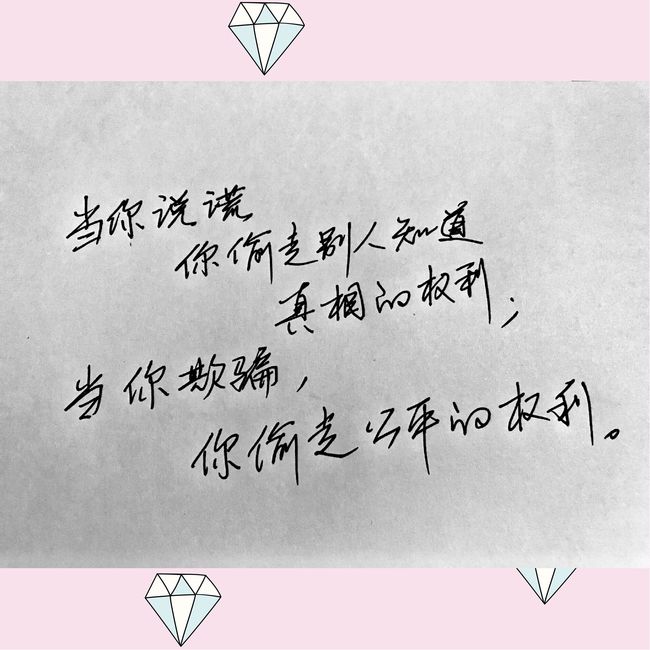 当你说谎
你偷走别人知道
真相的权利;
当你欺骗,
你偷走公平的权利。